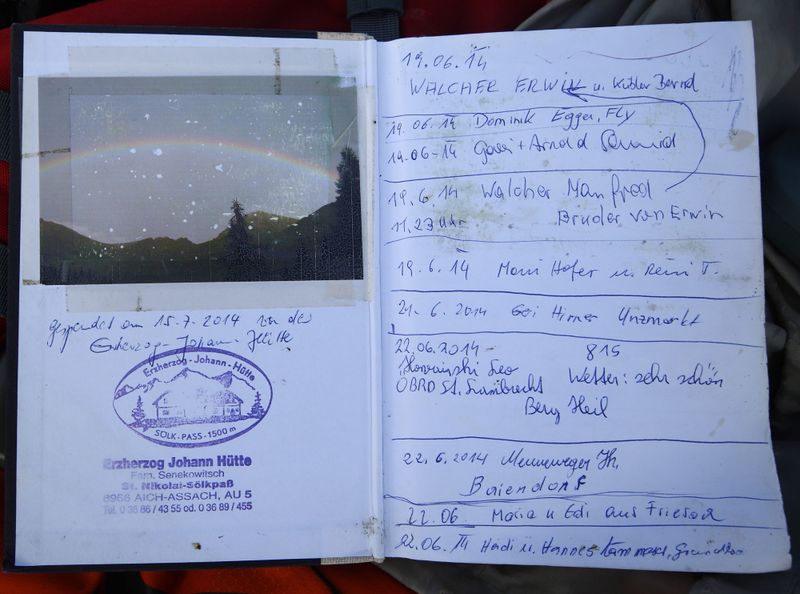 gespendet am 15.7.2014 von der
Erzherzog-Johann-Hütte
Erzherzog-Johann-Hütte
SÖLK-PASS-1500 m
Erzherzog Johann Hütte
Fam. Senekowitsch
St. Nikolai-Sölkpaß
8966 AICH-ASSACH, AU 5
Tel. 0 36 86 / 43 55 od. 0 36 89 / 455
19.06.14
WALCHER ERWIN u. Bernd
19.06.14 Dominik Egger, Fly
19.06-14 + Arnold Schmid
19.6.14 Walcher Manfred
11.23 Uhr Bruder von Erwin
19.6.14 Hofer u. T.
21.6.2014 Unzmarkt
22.06.2014 815
Leo
ÖBRD St. Lambrecht Wetter: sehr schön
Berg Heil
22.6.2014
Baiendorf
22.06. Maria u Edi aus Friesach
22.06. Heidi u. Hannes